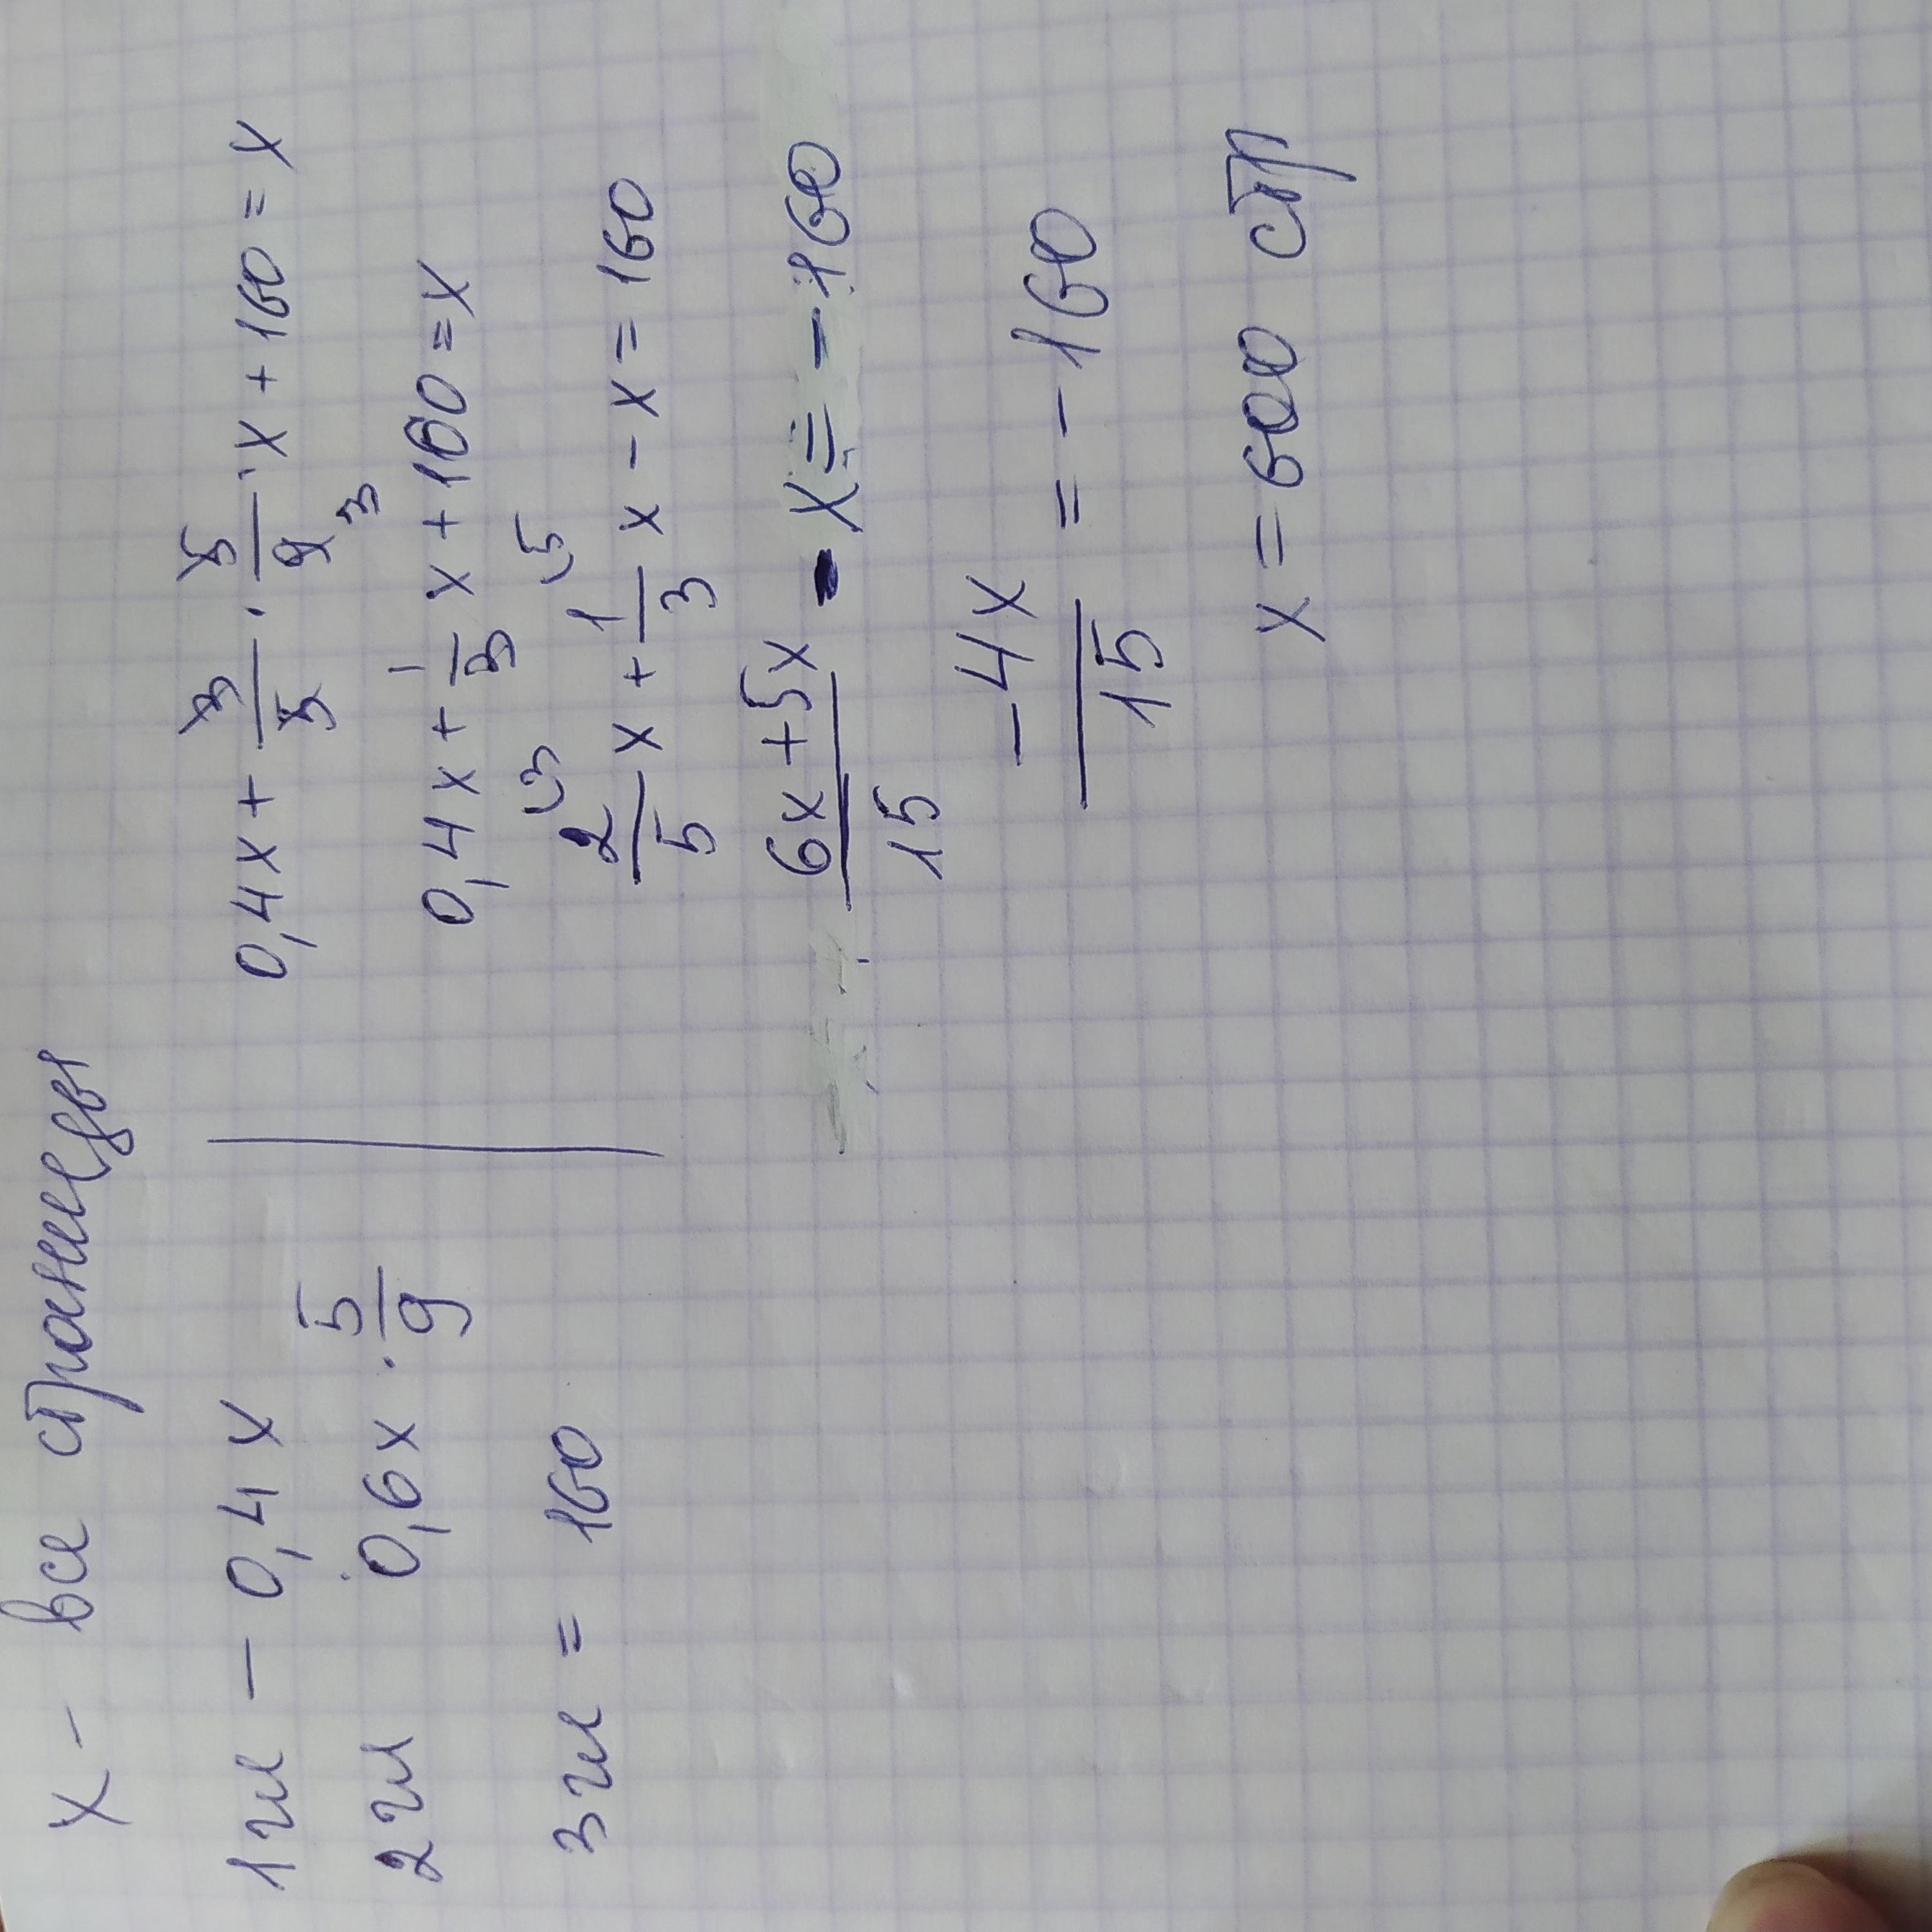 x - все страницы
1ги - 0,4x
2ги 0,6x · 5/9
3ги = 160
0,4x + 3/5 · 5/9 3 · x + 160 = x
0,4x + 1/3 x + 160 = x
2/5 (3 x + 1/3 (5 x - x = 160
6x + 5x / 15 - x = - 160
-4x / 15 = - 160
x = 600 стр